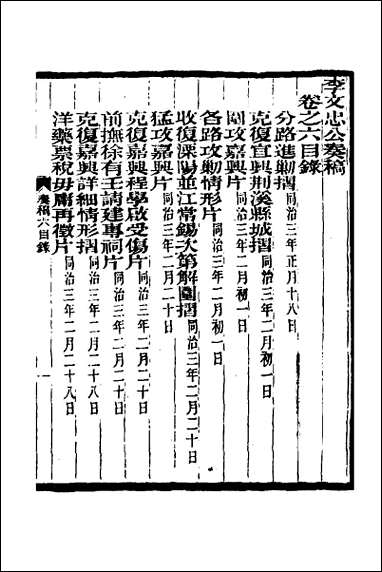 李文忠公奏稿
卷之六目錄
分路進勦摺同治三年正月十八日
克復宜興荆溪縣城摺同治三年二月初一日
圍攻嘉興片同治三年二月初一日
各路攻勦情形片同治三年二月初一日
收復溧陽並江常錫次第解圍摺同治三年二月二十日
猛攻嘉興片同治三年二月二十日
克復嘉興程學啟受傷片同治三年二月二十日
前撫徐有壬請建專祠片同治三年二月二十日
克復嘉興詳細情形摺同治三年二月二十八日
洋藥票稅毋庸再徵片同治三年二月二十八日
奏稿六目錄
一